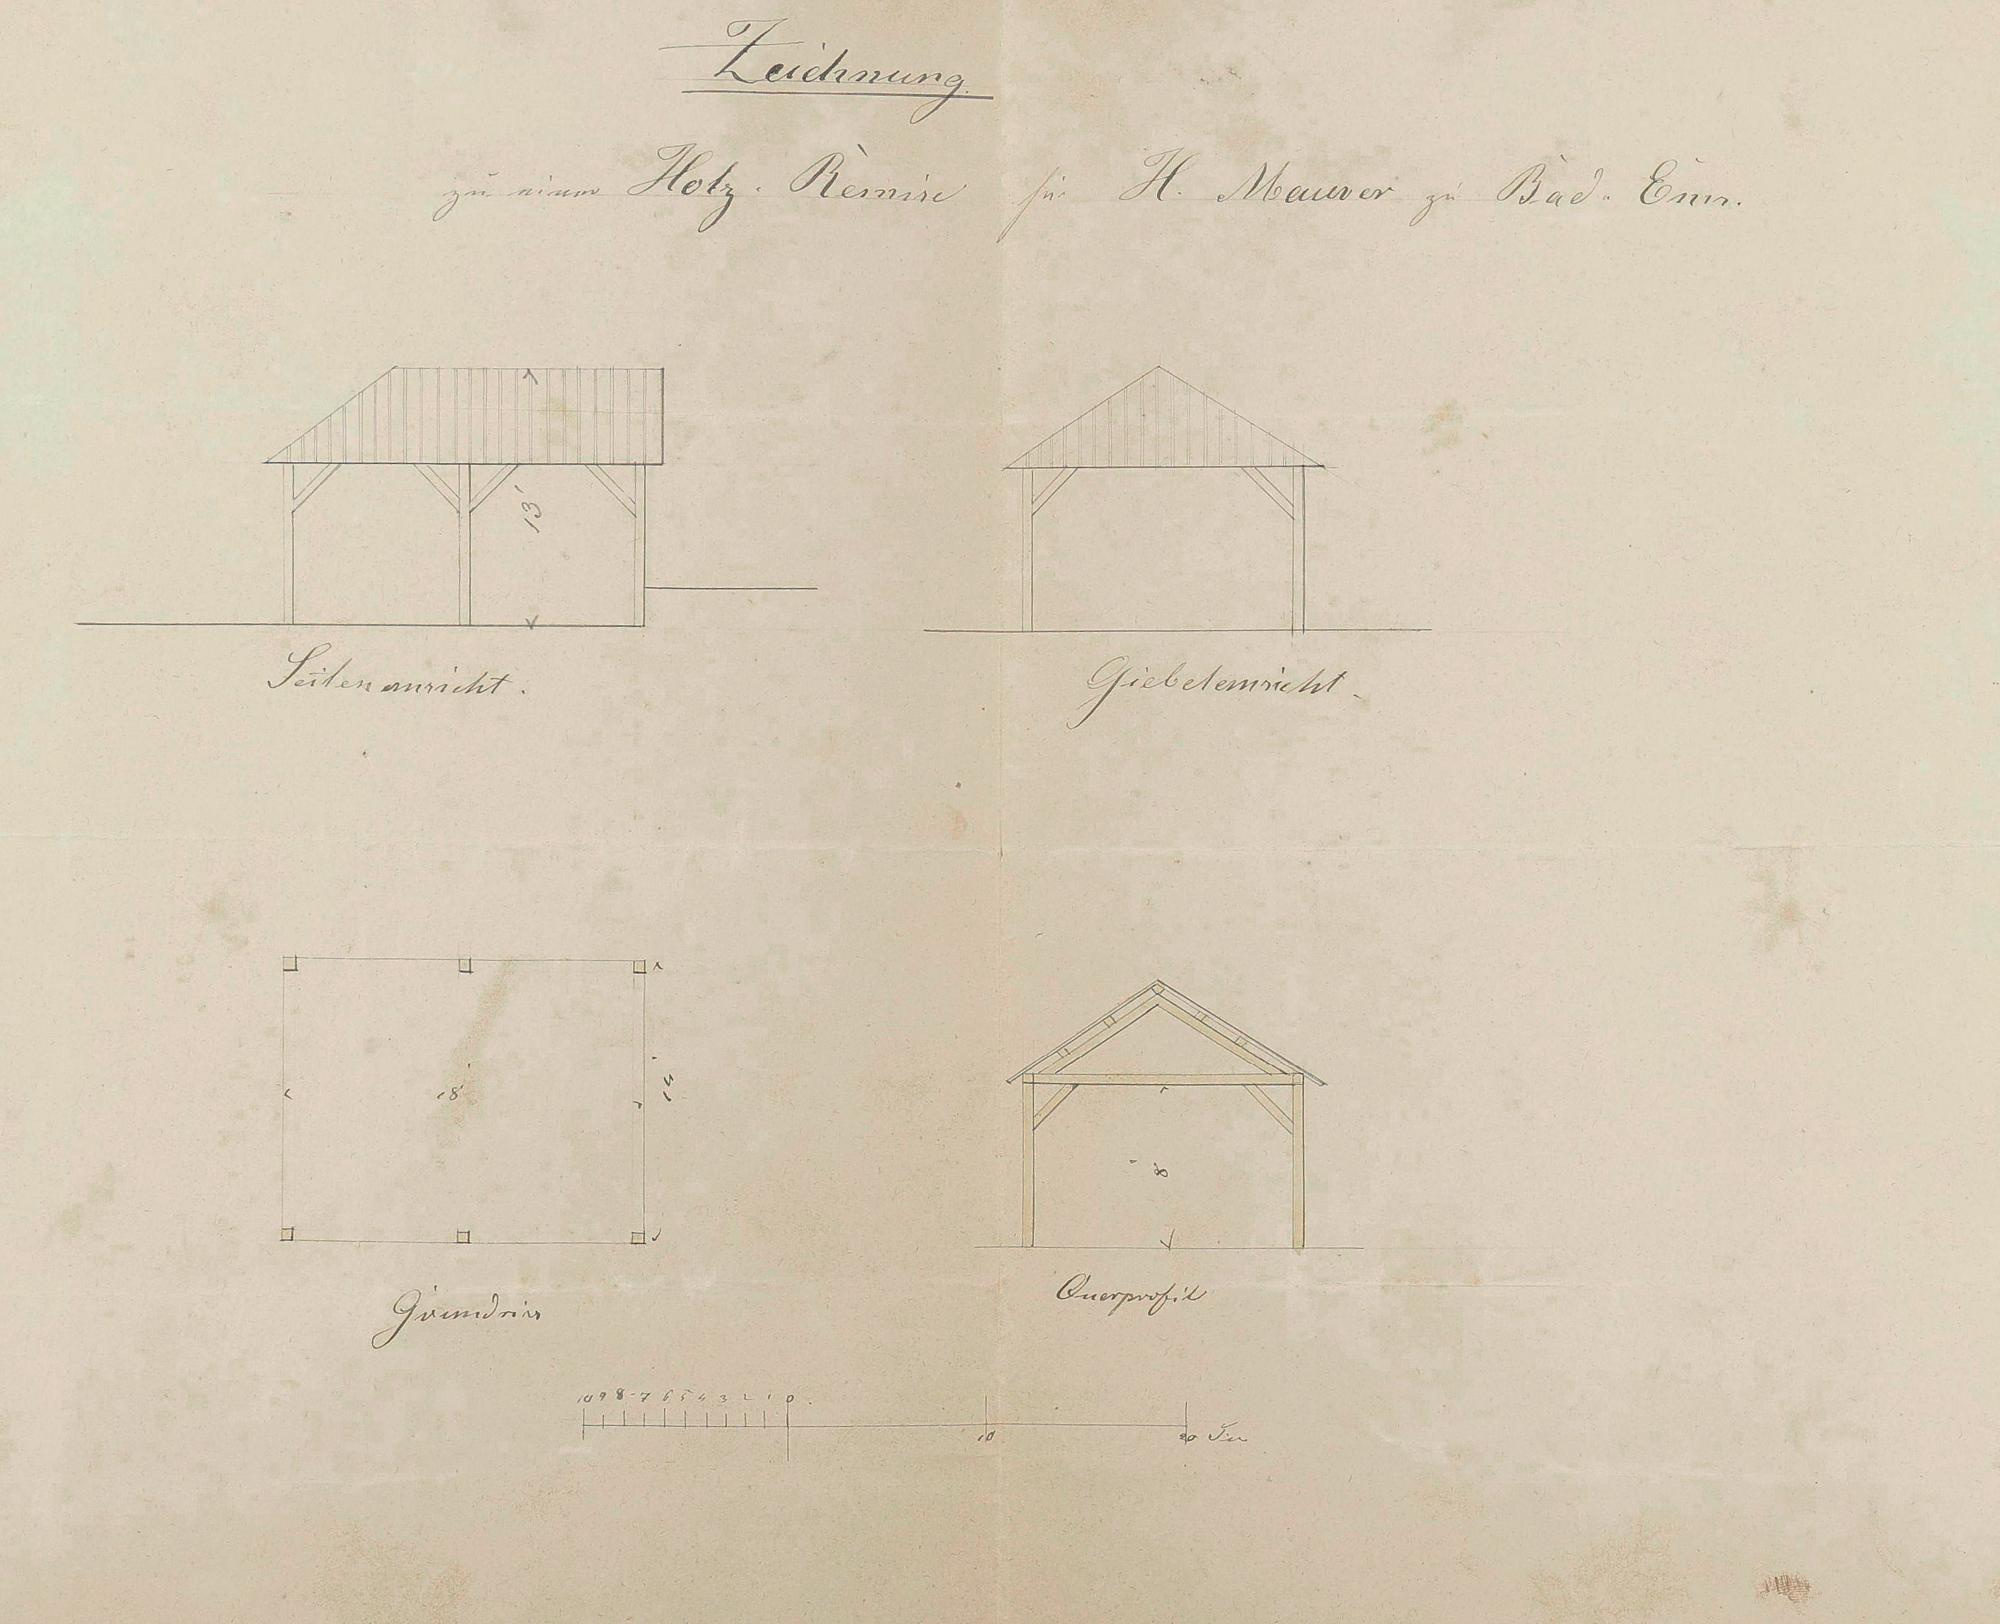 Zeichnung.
zu einer Holz-Remise für H. Maurer zu Bad-Ems.
13'
Seitenansicht.
Giebelansicht.
18'
14'
8'
Grundriss
Querprofil
10 9 8 7 6 5 4 3 2 1 0
10 20